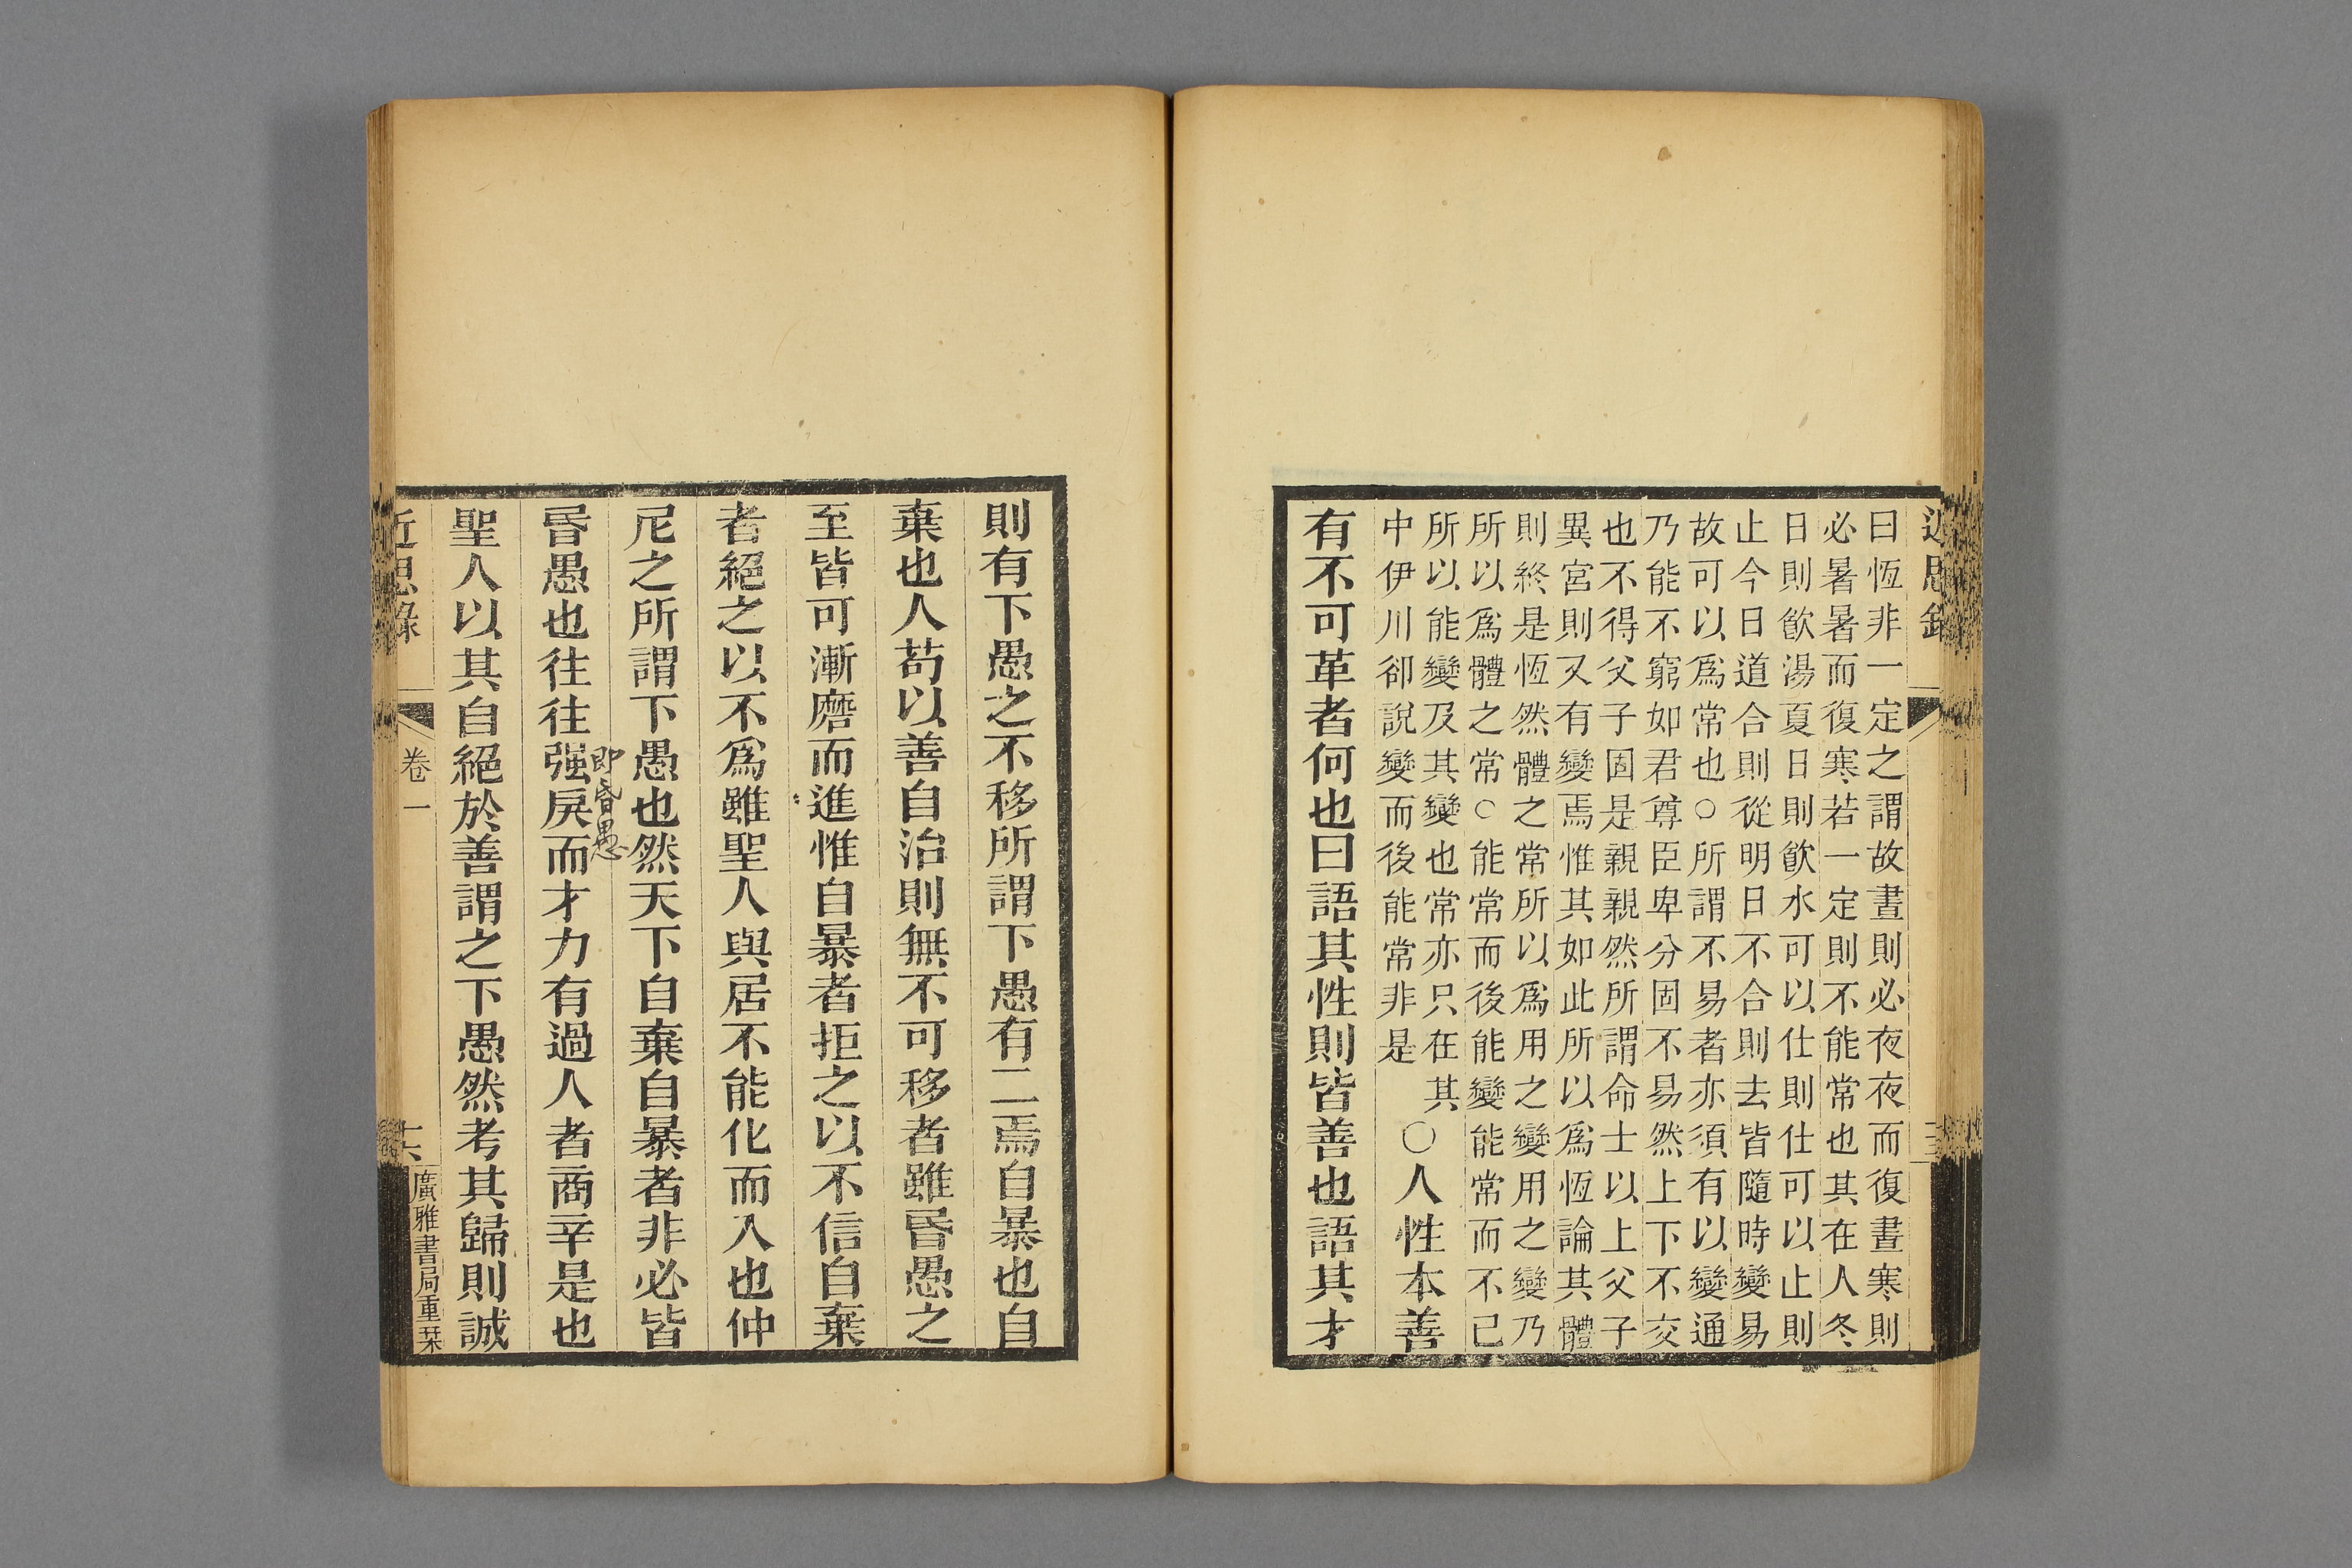 近思錄
曰恆非一定之謂故晝則必夜夜而復晝寒則
必暑暑而復寒若一定則不能常也其在人冬
日則飮湯夏日則飮水可以仕則仕可以止則
止今日道合則從明日不合則去皆隨時變易
故可以爲常也○所謂不易者亦須有以變通
乃能不窮如君尊臣卑分固不易然上下不交
也不得父子固是親親然所謂命士以上父子
異宮則又有變焉惟其如此所以爲恆論其體
則終是恆然體之常所以爲用之變用之變乃
所以爲體之常○能常而後能變能常而不已
所以能變及其變也常亦只在其
中伊川卻說變而後能常非是
○人性本善
有不可革者何也曰語其性則皆善也語其才
則有下愚之不移所謂下愚有二焉自暴也自
棄也人苟以善自治則無不可移者雖昬愚之
至皆可漸磨而進惟自暴者拒之以不信自棄
者絕之以不爲雖聖人與居不能化而入也仲
尼之所謂下愚也然天下自棄自暴者非必皆
即昏愚
昬愚也往往强戾而才力有過人者商辛是也
聖人以其自絕於善謂之下愚然考其歸則誠
近思錄
卷一
十六
廣雅書局重栞